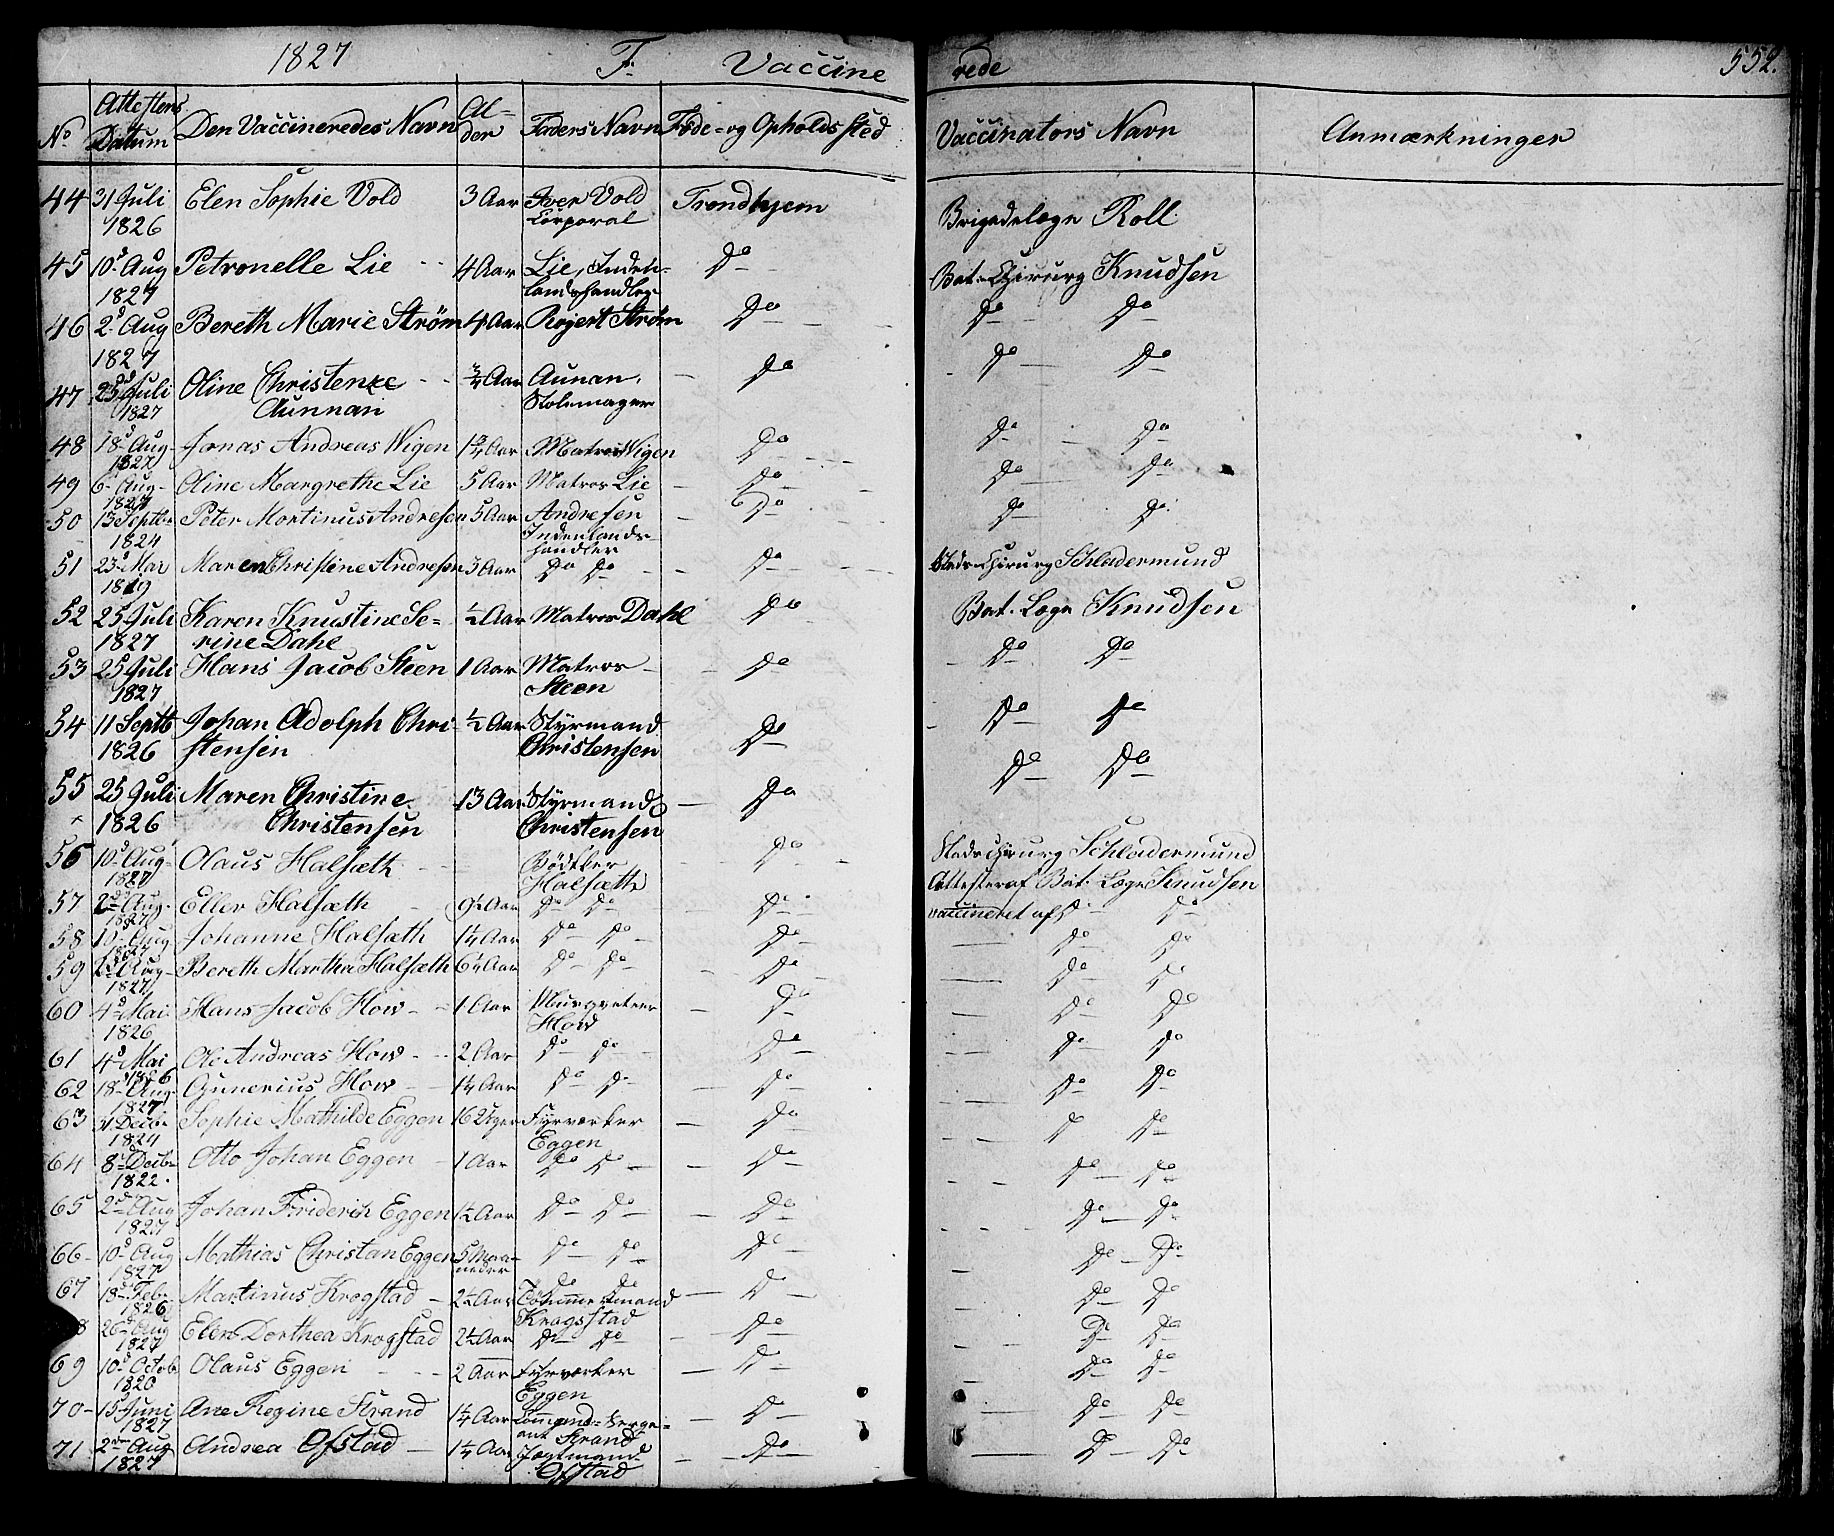 1827 F. Vaccine rede 552.
No Attestens Datum Den Vaccineredes Navn Al- der Faders Navn Føde- og Opholds sted Vaccinators Navn Anmærkninger
44 31 Juli 1826 Elen Sophie Vold 3 Aar Iver Vold Corporal Trondhjem Brigadelæge Roll
45 10d Aug 1827 Petronelle Lie 4 Aar Lie, Inden- landshandler Do Bat. Chirurg Knudsen
46 2d Aug 1827 Bereth Marie Strøm 4 Aar Rojert Strøm Do Do Do
47 25d Juli 1827 Oline Christence Aunnan 3/4 Aar Aunan, Stolemager Do Do Do
48 18d Aug 1827 Jonas Andreas Wigen 1 3/4 Aar Matros Wigen Do Do Do
49 6 Aug 1827 Oline Margrethe Lie 5 Aar Matros Lie Do Do Do
50 13 Septbr 1824 Peter Mortinus Andresen 5 Aar Andresen Indenlands- handler Do Do Do
51 23d Mar 1819 Maren Christine Andresen 3 Aar Do Do Do Stads-Chirurg Schladermund
52 25 Juli 1827 Karen Knustine Se- rine Dahl 1/2 Aar Matros Dahl Do Bat. Læge Knudsen
53 25 Juli 1827 Hans Jacob Steen 1 Aar Matros Steen Do Do Do
54 11 Septb 1826 Johan Adolph Chri- stensen 1/2 Aar Styrmand Christensen Do Do Do
55 25 Juli 1826 Maren Christine Christensen 13 Aar Styrmand Christensen Do Do Do
56 10d Aug 1827 Olaus Halsæth Bødtker Halsæth Do Stads Chirurg Schladermund
57 2d Aug. 1827 Eller Halsæth 9 1/2 Aar Do Do Do Attester af Bat. Læge Knudsen vaccineret af Do Do
58 10 Aug 1827 Johanne Halsæth 1 1/4 Aar Do Do Do Do Do
59 2d Aug 1827 Bereth Martha Halsæth 6 1/4 Aar Do Do Do Do Do
60 4d Mai 1826 Hans Jacob How 1 Aar How Do Do Do
61 4d Mai 1826 Ole Andreas How 2 Aar Do Do Do Do Do
62 18 Aug 1827 Gunerius How 1 1/4 Aar Do Do Do Do Do
63 31 Decbr 1824 Sophie Mathilde Eggen 16 Uger Fyrværker Eggen Do Do Do
64 8d Decbr 1822. Otto Johan Eggen 1 Aar Do Do Do Do Do
65 2d Aug 1827 Johan Friderich Eggen 1 1/2 Aar Do Do Do Do Do
66 10d Aug 1827 Mathias Christan Eggen 5 Maa- neder Do Do Do Do Do
67 18d Feb. 1826 Martinus Krogstad 2 1/2 Aar Do Do Tømmermand Krogsstad Do Do Do
8 26 Aug 1827 Elen Dorthea Krogstad 2 1/2 Aar Do Do Do Do Do
69 10d Octob 1820 Olaus Eggen 2 Aar Fyrværker Eggen Do Do Do
70 15 Juni 1827 Ane Regine Strand 1 1/4 Aar Command-Serge- ant Strand Do Do Do
71 2den Aug 1827 Andrea Ofstad 1 1/4 Aar Jægtmand Ofstad Do Do Do